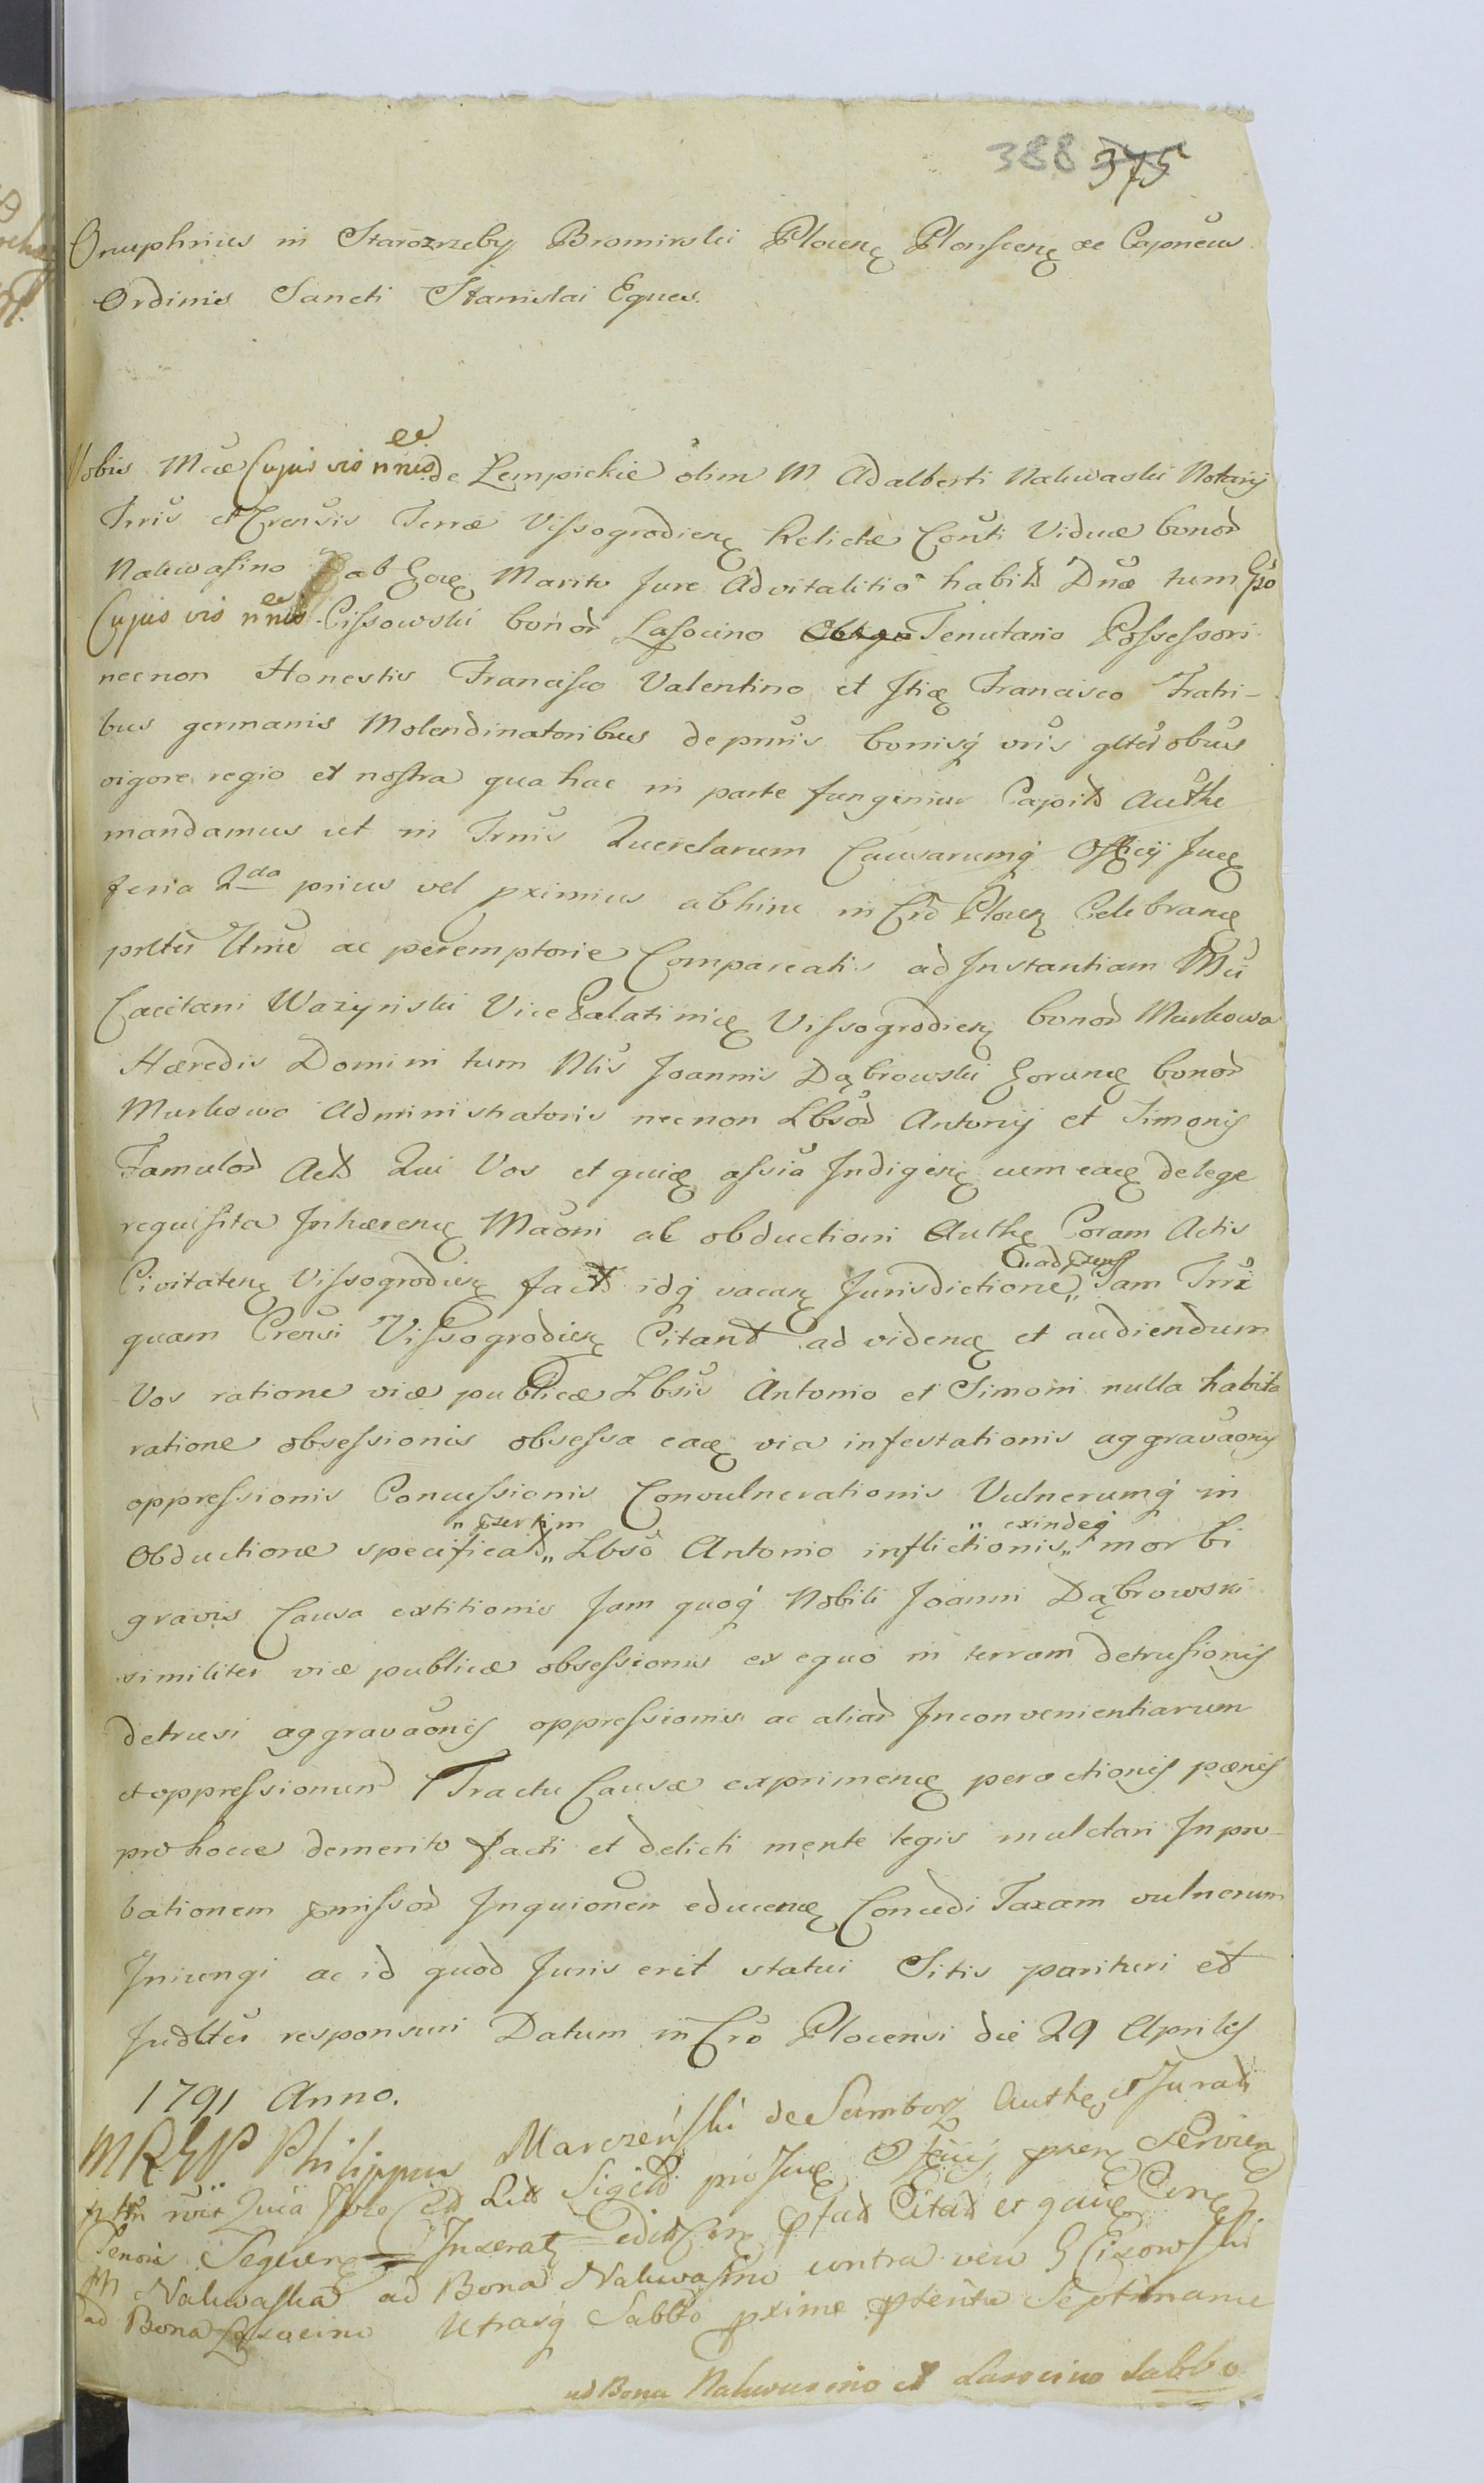 388 375
Onuphrius in Starozreby Bromirski Plocen Plonscen &c Capneus
Ordinis Sancti Stanislai Eques.
ee
Vobis Mcae Cujus vis nnis de Lempickie olim M Adalberti Nakwaski Notarij
Trris et Crensis Terrae Vissogrodien Relictae Conti Viduae bonor
Nakwasino ab Eoq Marito Jure Advitalitio habit Dnae tum Gso
ee
Cujus vis nnis Cissowski bonor Lasocino Tenutario Possessori
necnon Honestis Francisco Valentino et Itiq Francisco Fratri-
bus germanis Molendinatoribus de pnnis bonisq vris glter obus
vigore regio et nostra qua hac in parte fungimur Capit Authe
mandamus ut in Trnis Querelarum Causarumq Officij Juq
feria 2da prius vel pximius abhinc in Cro Plocen Celebranq
prlter Ttme ac peremptorie Compareatis ad Instantiam Mci
Caietani Wazynski Vice Palatiniq Vissogrodien bonor Murkowo
Haeredis Domini tum Nlis Joannis Dąbrowski Eorunq bonor
Murkowo Administratoris necnon Lbsor Antonij et Simonis
Famulor Act Qui Vos et quiq assia Indigenq cum eaq de lege
requisita Inhaerenq Maoni ac obductioni Authq Coram Actis
Civitatenq Vissogrodien fact idq vacan Jurisdictione „ tam Trri
quam Crensi Vissogrodien Citant ad videnq et audiendum
Vos ratione viae publicae Lbsis Antonio et Simoni nulla habita
ratione obsessionis obsessa eaq via infestationis aggravaonis
oppressionis Concussionis Convulnerationis Vulnerumq in
„ psertim „ exindeq
Obductione specificat „ Lbso Antonio inflictionis „ morbi
gravis Causa extitionis Jam quoq Nobili Joanni Dąbrowski
similiter viae publicae obsessionis ex equo in terram detrusionis
detrusi aggravaonis oppressionis ac aliar Inconvenientiarum
et oppressionum Tractu Causae exprimenq peractionis paenis
pro hocce demerito facti et delicti mente legis mulctari Inpro-
bationem pmissor Inquionem educenq Concedi Taxam vulnerum
Iniungi ac id quod Juris erit statui Sitis parituri et
Judlter responsuri Datum in Cro Plocensi die 29 Aprilis
1791 Anno.
MRGP Philippus Marczenski de Sambor Authq et Jurati
Quia Lit Sigill pro Juq Officij pren Servien
Tenoris Sequenq Inserat edit ptat Citat et quiq Cenq
M Nakwaska ad Bona Nakwasino contra vero G Cixowski
ad Bona Lasocino Utrasq Sabbo pxime pterita Septimana
ad Bona Nakwasino et Lasocino Sabbo